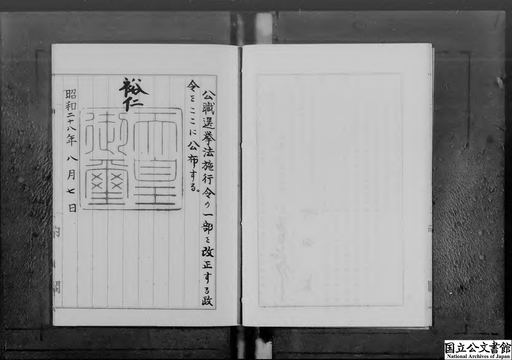 公職選挙法施行令の一部を改正する政
令をここに公布する。
裕仁
天皇
御璽
昭和二十八年八月七日
国立公文書館
National Archives of Japan